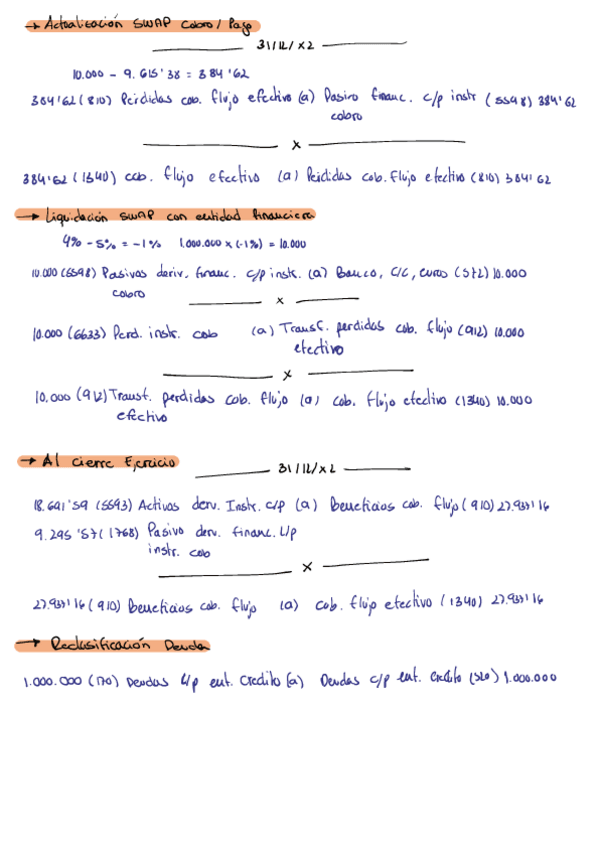 → Actualización SWAP Cobro / Pago
31/12/X2
10.000 - 9.615'38 = 384'62
384'62 (810) Perdidas cob. flujo efectivo (a) Pasivo financ. c/p instr (5598) 384'62
cobro
X
384'62 (1340) cob. flujo efectivo (a) Perdidas cob. flujo efectivo (810) 384'62
→ Liquidación SWAP con entidad financiera
4% - 5% = -1% 1.000.000 x (-1%) = 10.000
10.000 (5598) Pasivos deriv. financ. c/p instr. (a) Banco, C/C, euros (572) 10.000
cobro
x
10.000 (6633) Perd. instr. cob (a) Transf. perdidas cob. flujo (912) 10.000
efectivo
x
10.000 (912) Transf. perdidas cob. flujo (a) cob. flujo efectivo (1340) 10.000
efectivo
→ Al cierre Ejercicio
31/12/X2
18.691'59 (5593) Activos deriv. Instr. c/p (a) Beneficios cob. flujo (910) 27.937'16
9.295'57 (1768) Pasivo deriv. financ. L/p
instr. cob
X
27.937'16 (910) Beneficios cob. flujo (a) cob. flujo efectivo (1340) 27.937'16
→ Reclasificación Deuda
1.000.000 (170) Deudas L/p ent. Credito (a) Deudas c/p ent. Credito (520) 1.000.000